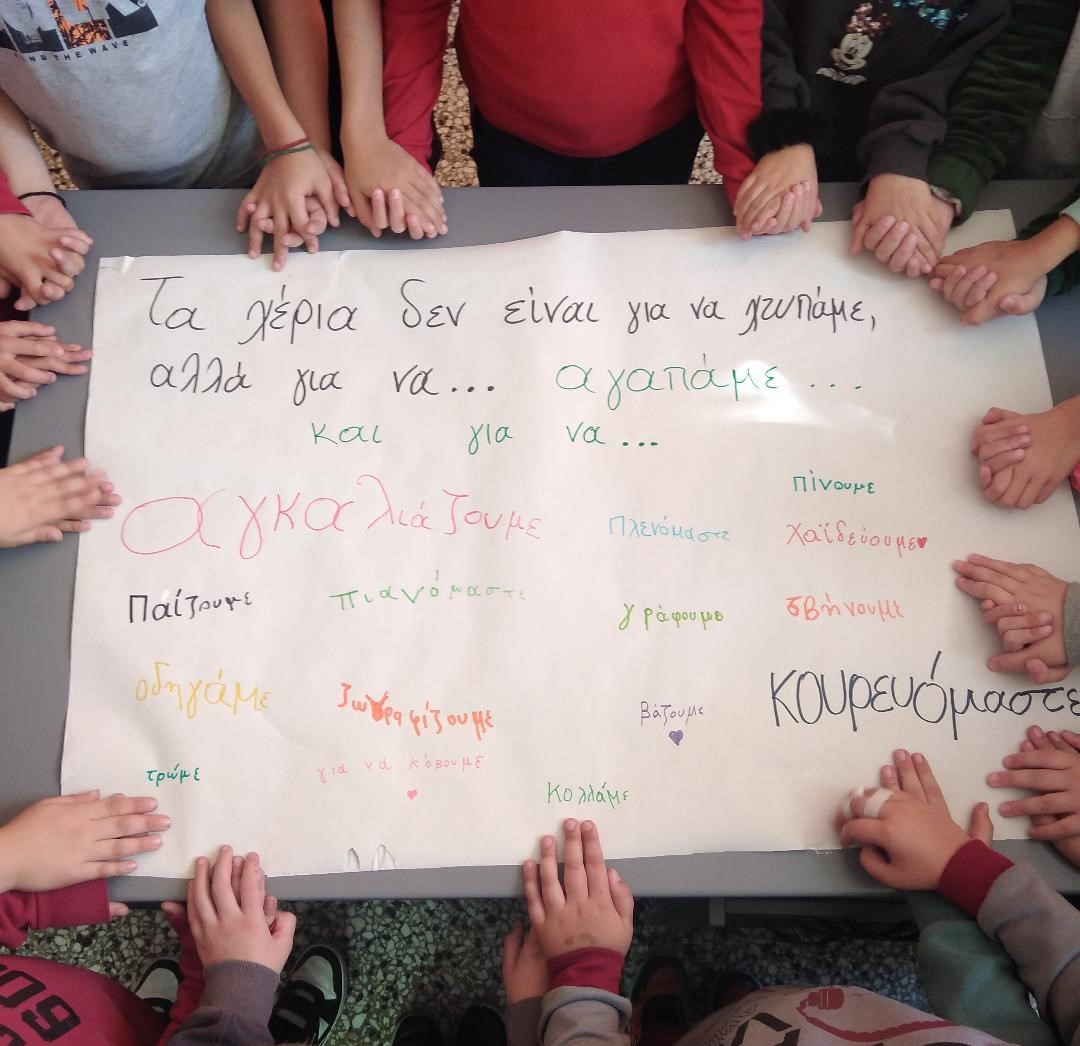 Τα χέρια δεν είναι για να χτυπάμε,
αλλά για να... αγαπάμε ...
και για να...
αγκαλιάζουμε
πίνουμε
Πλενόμαστε
χαϊδεύουμε
Παίζουμε
πιανόμαστε
γράφουμε
σβήνουμε
οδηγάμε
ζωγραφίζουμε
βάζουμε
κουρευόμαστε
τρώμε
για να κόβουμε
κολλάμε
ND THE WAVE